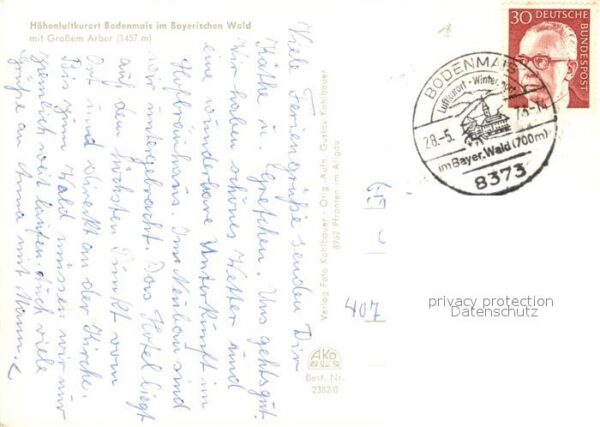 Höhenluftkurort Bodenmais im Bayerischen Wald
mit Großem Arber (1457 m)
Viele Feriengrüße senden Dir
Käthe u. Gretchen. Uns gehts gut.
Wir haben schönes Wetter und
eine wunderbare Unterkunft im
Hofbräuhaus. Im Neubau sind
wir untergebracht. Das Hotel liegt
auf dem höchsten Punkt vom
Ort und direkt an der Kirche.
Bis zum Wald müssen wir nur
ziemlich weit laufen. Auch viele
Grüße an Anna mit Mann.
Verlag Foto Kohlbauer - Orig.-Aufn. Gustav Kohlbauer
8962 Pfronten im Allgäu
AKo
Best. Nr.
2382-0
407
30 DEUTSCHE
BUNDESPOST
BODENMAIS
Luftkurort - Wintersport
28.-5.
im Bayer. Wald (700m)
8373
privacy protection
Datenschutz